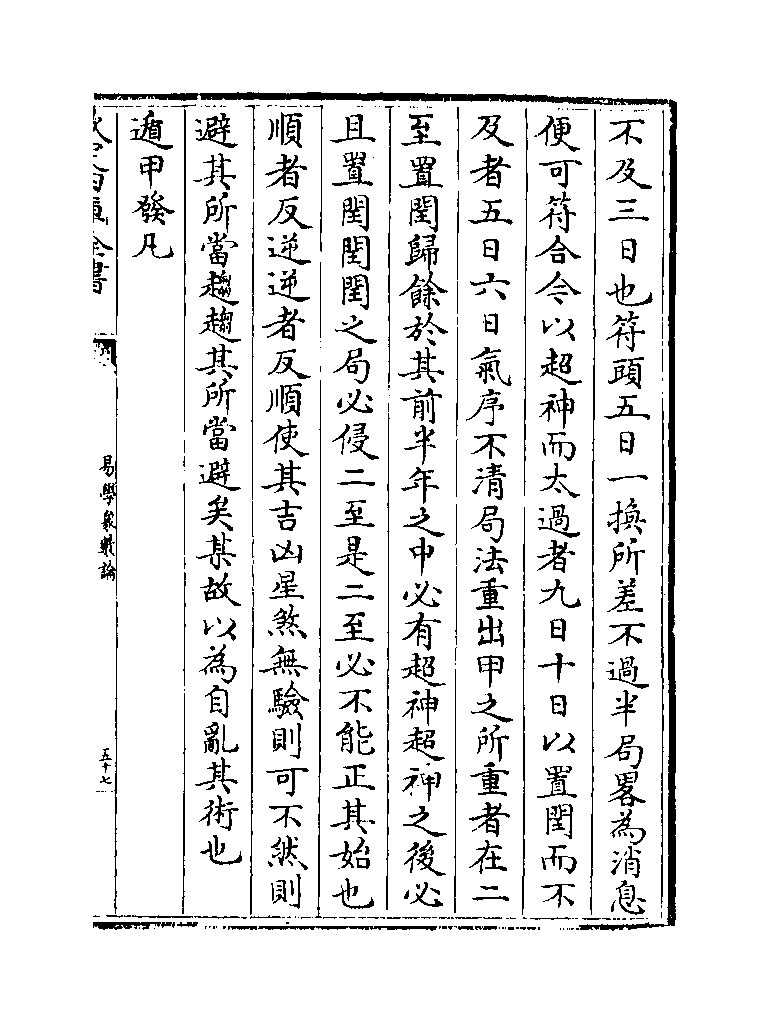 不及三日也符頭五日一換所差不過半局畧為消息
便可符合今以超神而太過者九日十日以置閏而不
及者五日六日氣序不清局法重出甲之所重者在二
至置閏歸餘於其前半年之中必有超神超神之後必
且置閏閏閏之局必侵二至是二至必不能正其始也
順者反逆逆者反順使其吉凶星煞無驗則可不然則
避其所當趨趨其所當避矣某故以為自亂其術也
遁甲發凡
欽定四庫全書
易學象數論
五十七